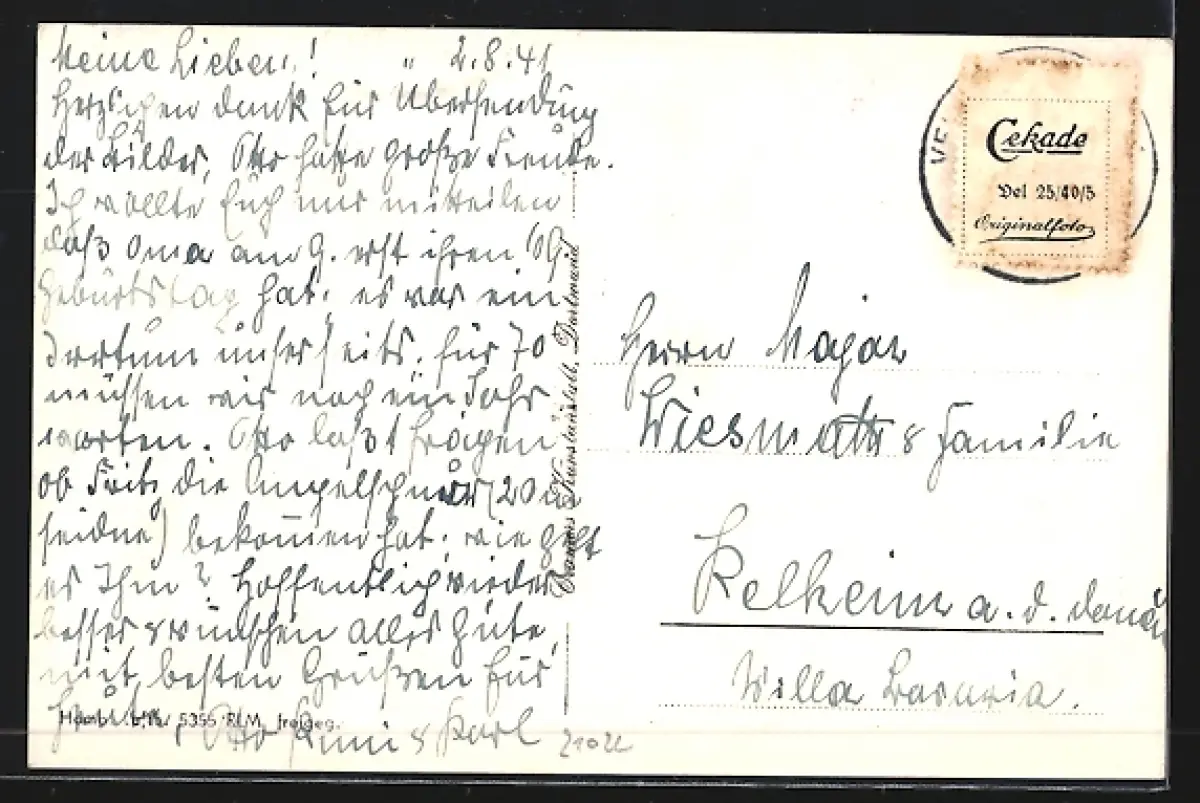 Meine Lieben! " 2.8.41
Herzlichen Dank für Übersendung
der Bilder, Otto hatte große Freude.
Ich wollte Euch nur mitteilen
daß Oma am 9. erst ihren 69.
Geburtstag hat, es war ein
Irrtum unserseits. für 70
müssen wir noch ein Jahr
warten. Otto läßt fragen
ob Fritz die Angelschnur (20 m
seidne) bekommen hat, wie geht
es Ihm? Hoffentlich wieder
besser & wünschen alles Gute,
mit besten Grüßen für
Otto & Karl
5355 RLM freigeg.
21022
Cramers Kunstanstalt, Dortmund
VE
Cekade
Vel 25/40/5
Originalfoto
Herrn Major
Wiesmath & Familie
Kelheim a. d. Donau
Villa Bavaria.